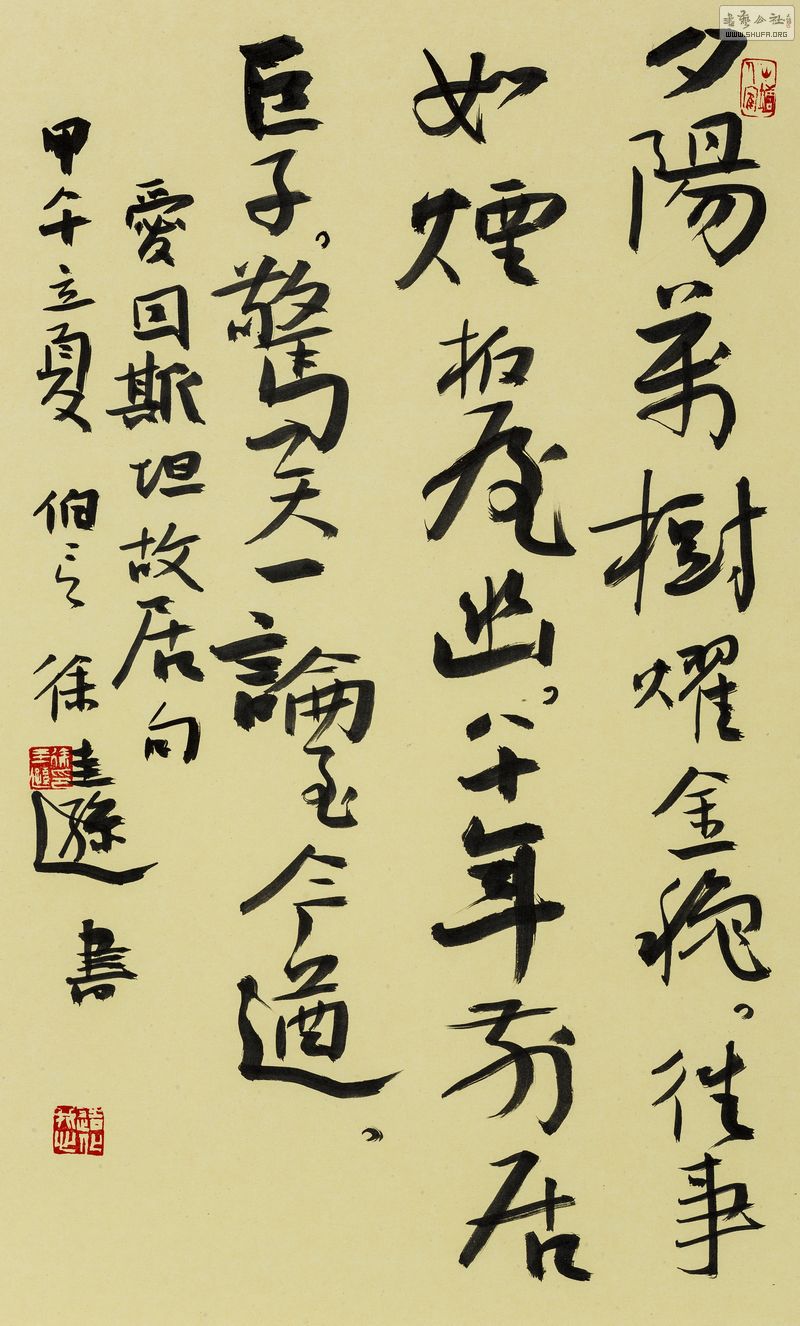 夕陽萬樹耀金穐。往事
如煙板屋幽。八十年前居
巨子。驚天一論至今遒。
愛因斯坦故居句
甲午立夏 伯言 徐圭遜 書
書藝公社
WWW.SHUFA.ORG